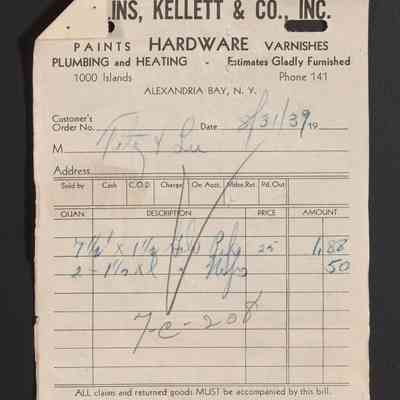 INS, KELLETT & CO., INC.
PAINTS HARDWARE VARNISHES
PLUMBING and HEATING - Estimates Gladly Furnished
1000 Islands Phone 141
ALEXANDRIA BAY, N. Y.
Customer's
Order No. Date 8/31/39 19
M
Address
Sold by Cash C.O.D. Charge On Acct. Mdse.Ret. Pd.Out
QUAN. DESCRIPTION PRICE AMOUNT
7 1/2' x 1 1/2 25 1.88
2 - 1 1/2 50
7-C-208
ALL claims and returned goods MUST be accompanied by this bill.